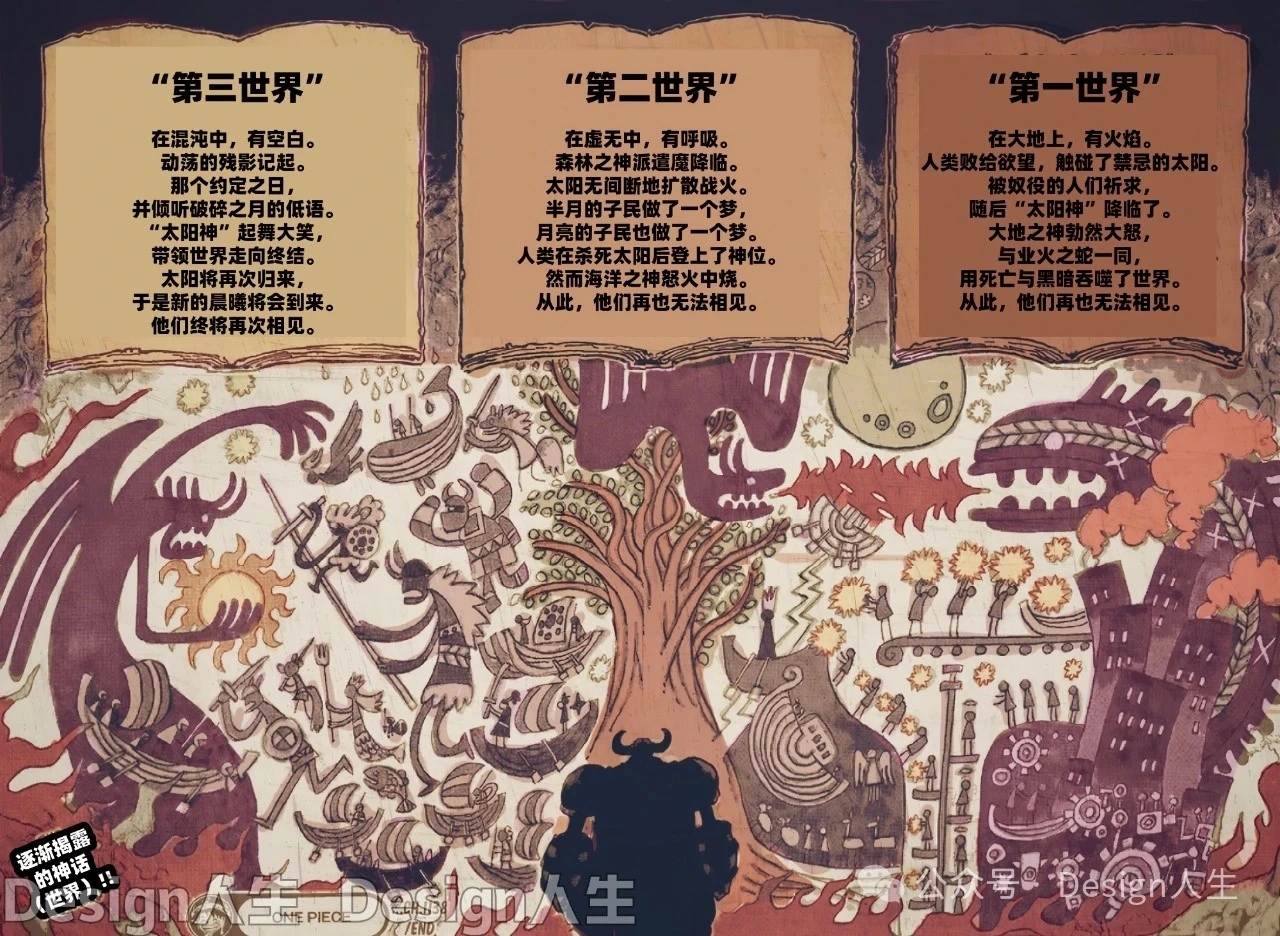 “第三世界”
在混沌中，有空白。
动荡的残影记起。
那个约定之日，
并倾听破碎之月的低语。
“太阳神”起舞大笑，
带领世界走向终结。
太阳将再次归来，
于是新的晨曦将会到来。
他们终将再次相见。
“第二世界”
在虚无中，有呼吸。
森林之神派遣魔降临。
太阳无间断地扩散战火。
半月的子民做了一个梦，
月亮的子民也做了一个梦。
人类在杀死太阳后登上了神位。
然而海洋之神怒火中烧。
从此，他们再也无法相见。
“第一世界”
在大地上，有火焰。
人类败给欲望，触碰了禁忌的太阳。
被奴役的人们祈求，
随后“太阳神”降临了。
大地之神勃然大怒，
与业火之蛇一同，
用死亡与黑暗吞噬了世界。
从此，他们再也无法相见。
逐渐揭露
的神话
（世界）!!
Design人生 Design人生
ONE PIECE
/END
公众号 Design人生